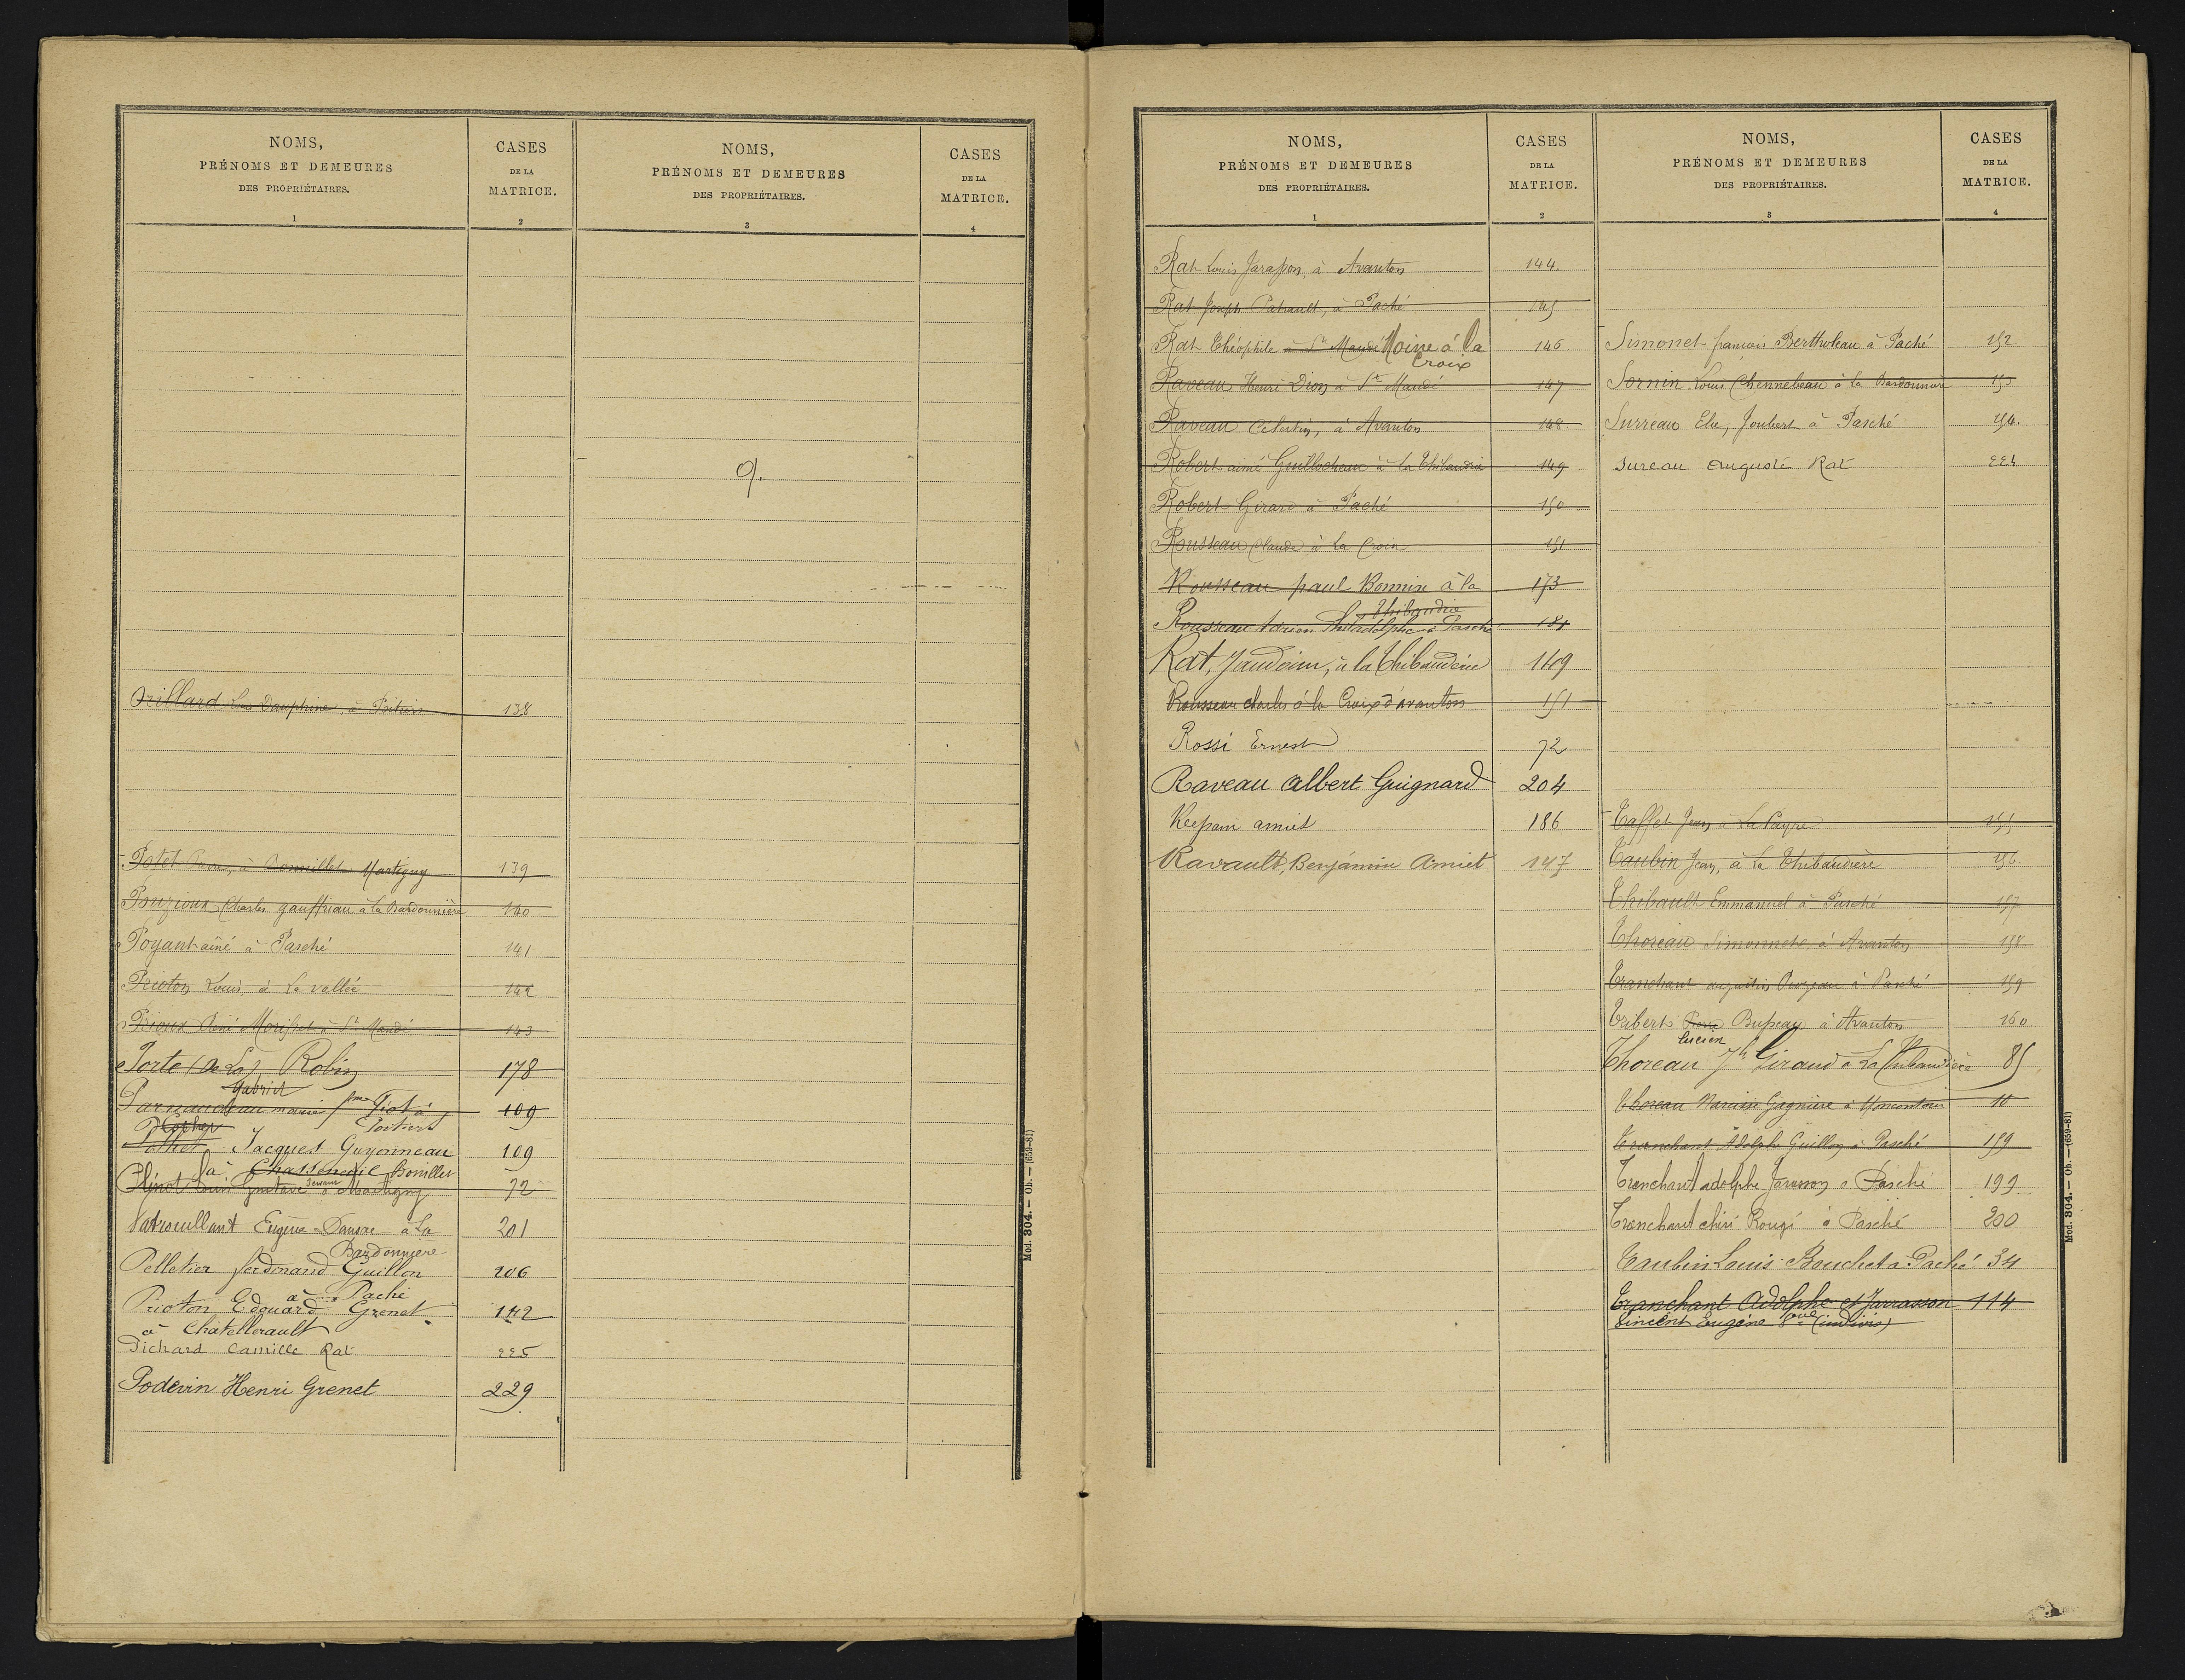 NOMS,
PRÉNOMS ET DEMEURES
DES PROPRIÉTAIRES.
1
CASES
DE LA
MATRICE.
2
NOMS,
PRÉNOMS ET DEMEURES
DES PROPRIÉTAIRES.
3
CASES
DE LA
MATRICE.
4
Orillard Louis Dauphine, à Poitiers 138
Potet à Bonnillet Martigny 139
Pouzioux Charles gauffriau à la Bardonnière 140
Poyant aîné à Pasché 141
Prioton Louis à La vallée 142
Prioux René Morisset à St Mandé 143
Porte (De La) Robin 178
Gabriel
Parnaudeau marie fme Giot à 109
Poitiers
Pothet Jacques Guyonneau 109
à Chasseneuil Bonillet
Plinot Louis Gustave à Martigny 72
Patrouillant Eugène Dansac à La 201
Bardonnière
Pelletier ferdinand Guillon 206
à Paché
Prioton Edouard Grenet 142
à Chatellerault
Pichard Camille Rat 225
Podevin Henri Grenet 229
Q.
Mod. 304. — Ob. — (659-81)
NOMS,
PRÉNOMS ET DEMEURES
DES PROPRIÉTAIRES.
1
CASES
DE LA
MATRICE.
2
NOMS,
PRÉNOMS ET DEMEURES
DES PROPRIÉTAIRES.
3
CASES
DE LA
MATRICE.
4
Rat Louis Jarasson, à Avanton 144.
Rat Joseph Patrault, à Paché 145
Rat Théophile à St Mandé Moine à la 146
Croix
Raveau Henri Dion à St Mandé 147
Raveau Célestin, à Avanton 148
Robert aimé Guillocheau à la Thibaudrie 149
Robert Girard à Paché 150
Rousseau Claude à La Croix 151
Rousseau paul Bonnin à la 173
Thibaudrie
Rousseau Adrien Philadelphe à Pasché 181
Rat, Jaudoin, à la Thibaudière 149
Rousseau charles à la Croix d'avanton 151
Rossi Ernest 72
Raveau Albert Guignard 204
amiet 186
Ravault, Benjámin Amiet 147
Simonet françois Bertholeau à Paché 152
Sornin Louis Chennebeau à la Bardonnière 153
Surreau Elie, Joubert à Pasché 154.
Sureau Auguste Rat 224
Taffet Jean à La Payre 155
Taubin Jean, à La Thibaudière 156.
Thibault Emmanuel à Pasché 157
Thoreau Simonnet à Avanton 158
Tranchant augustin à Pasché 159
Tribert Pierre Bupeau à Avanton 160
Lucien
Thoreau Jh Giraud à La Thibaudière 85
Thoreau Narcisse Gagnière à Moncontour 10
Tranchant Adolphe Guillon à Pasché 159
Tranchant adolphe Jarasson à Pasché 199
Tranchant chéri Rougé à Pasché 200
Taubin Louis Bouchet à Paché 34
Tranchant Adolphe et Jarrasson 114
Vincent Eugène Vve (indivis)
Mod. 304. — Ob. — (659-81)